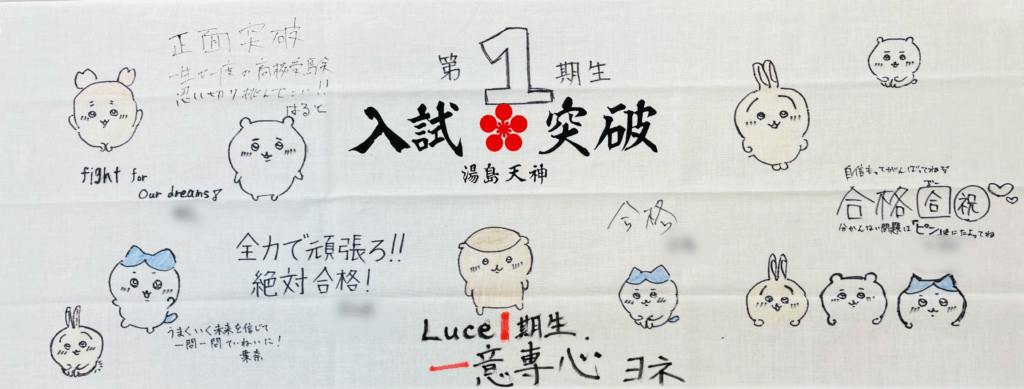 正面突破
一生で一度の高校受験
思い切り挑んでこい!!
はると
第1期生
入試突破
湯島天神
fight for
Our dreams
自信もってがんばってね
合格 合 祝
分かんない問題は「ピン」にたよってね
合格
全力で頑張ろ!!
絶対合格!
うまくいく未来を信じて
一問一問ていねいに!
葉奈
Luce 1期生.
一意専心 ヨネ